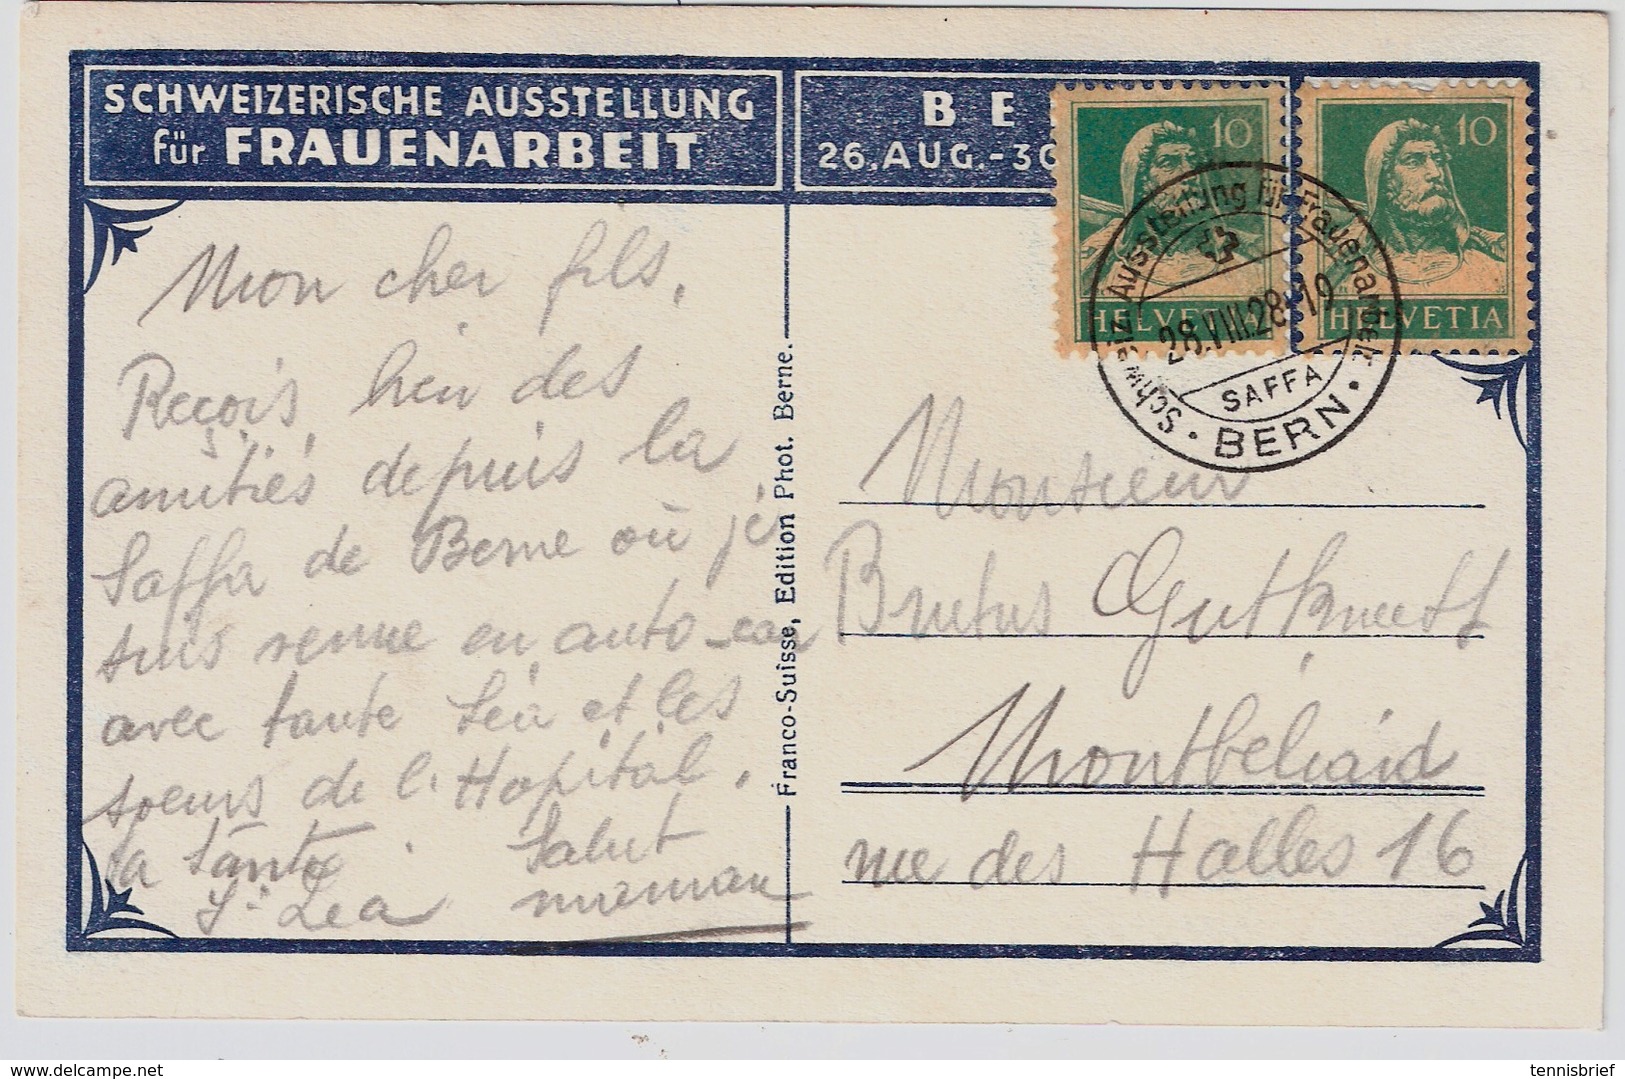 SCHWEIZERISCHE AUSSTELLUNG
für FRAUENARBEIT
BE
26. AUG. - 30
10
10
HELVETIA
HELVETIA
Schweiz. Ausstellung für Frauenarbeit
28.VIII.28-19
SAFFA
· BERN ·
Mon cher fils,
Reçois bien des
amitiés depuis la
Saffa de Berne où je
suis venue en auto-car
avec tante Léa et les
soeurs de l'Hopital.
Ta tante Salut
Léa maman
Franco-Suisse, Edition Phot. Berne.
Monsieur
Brutus Gutknecht
Montbeliard
rue des Halles 16
tennisbrief